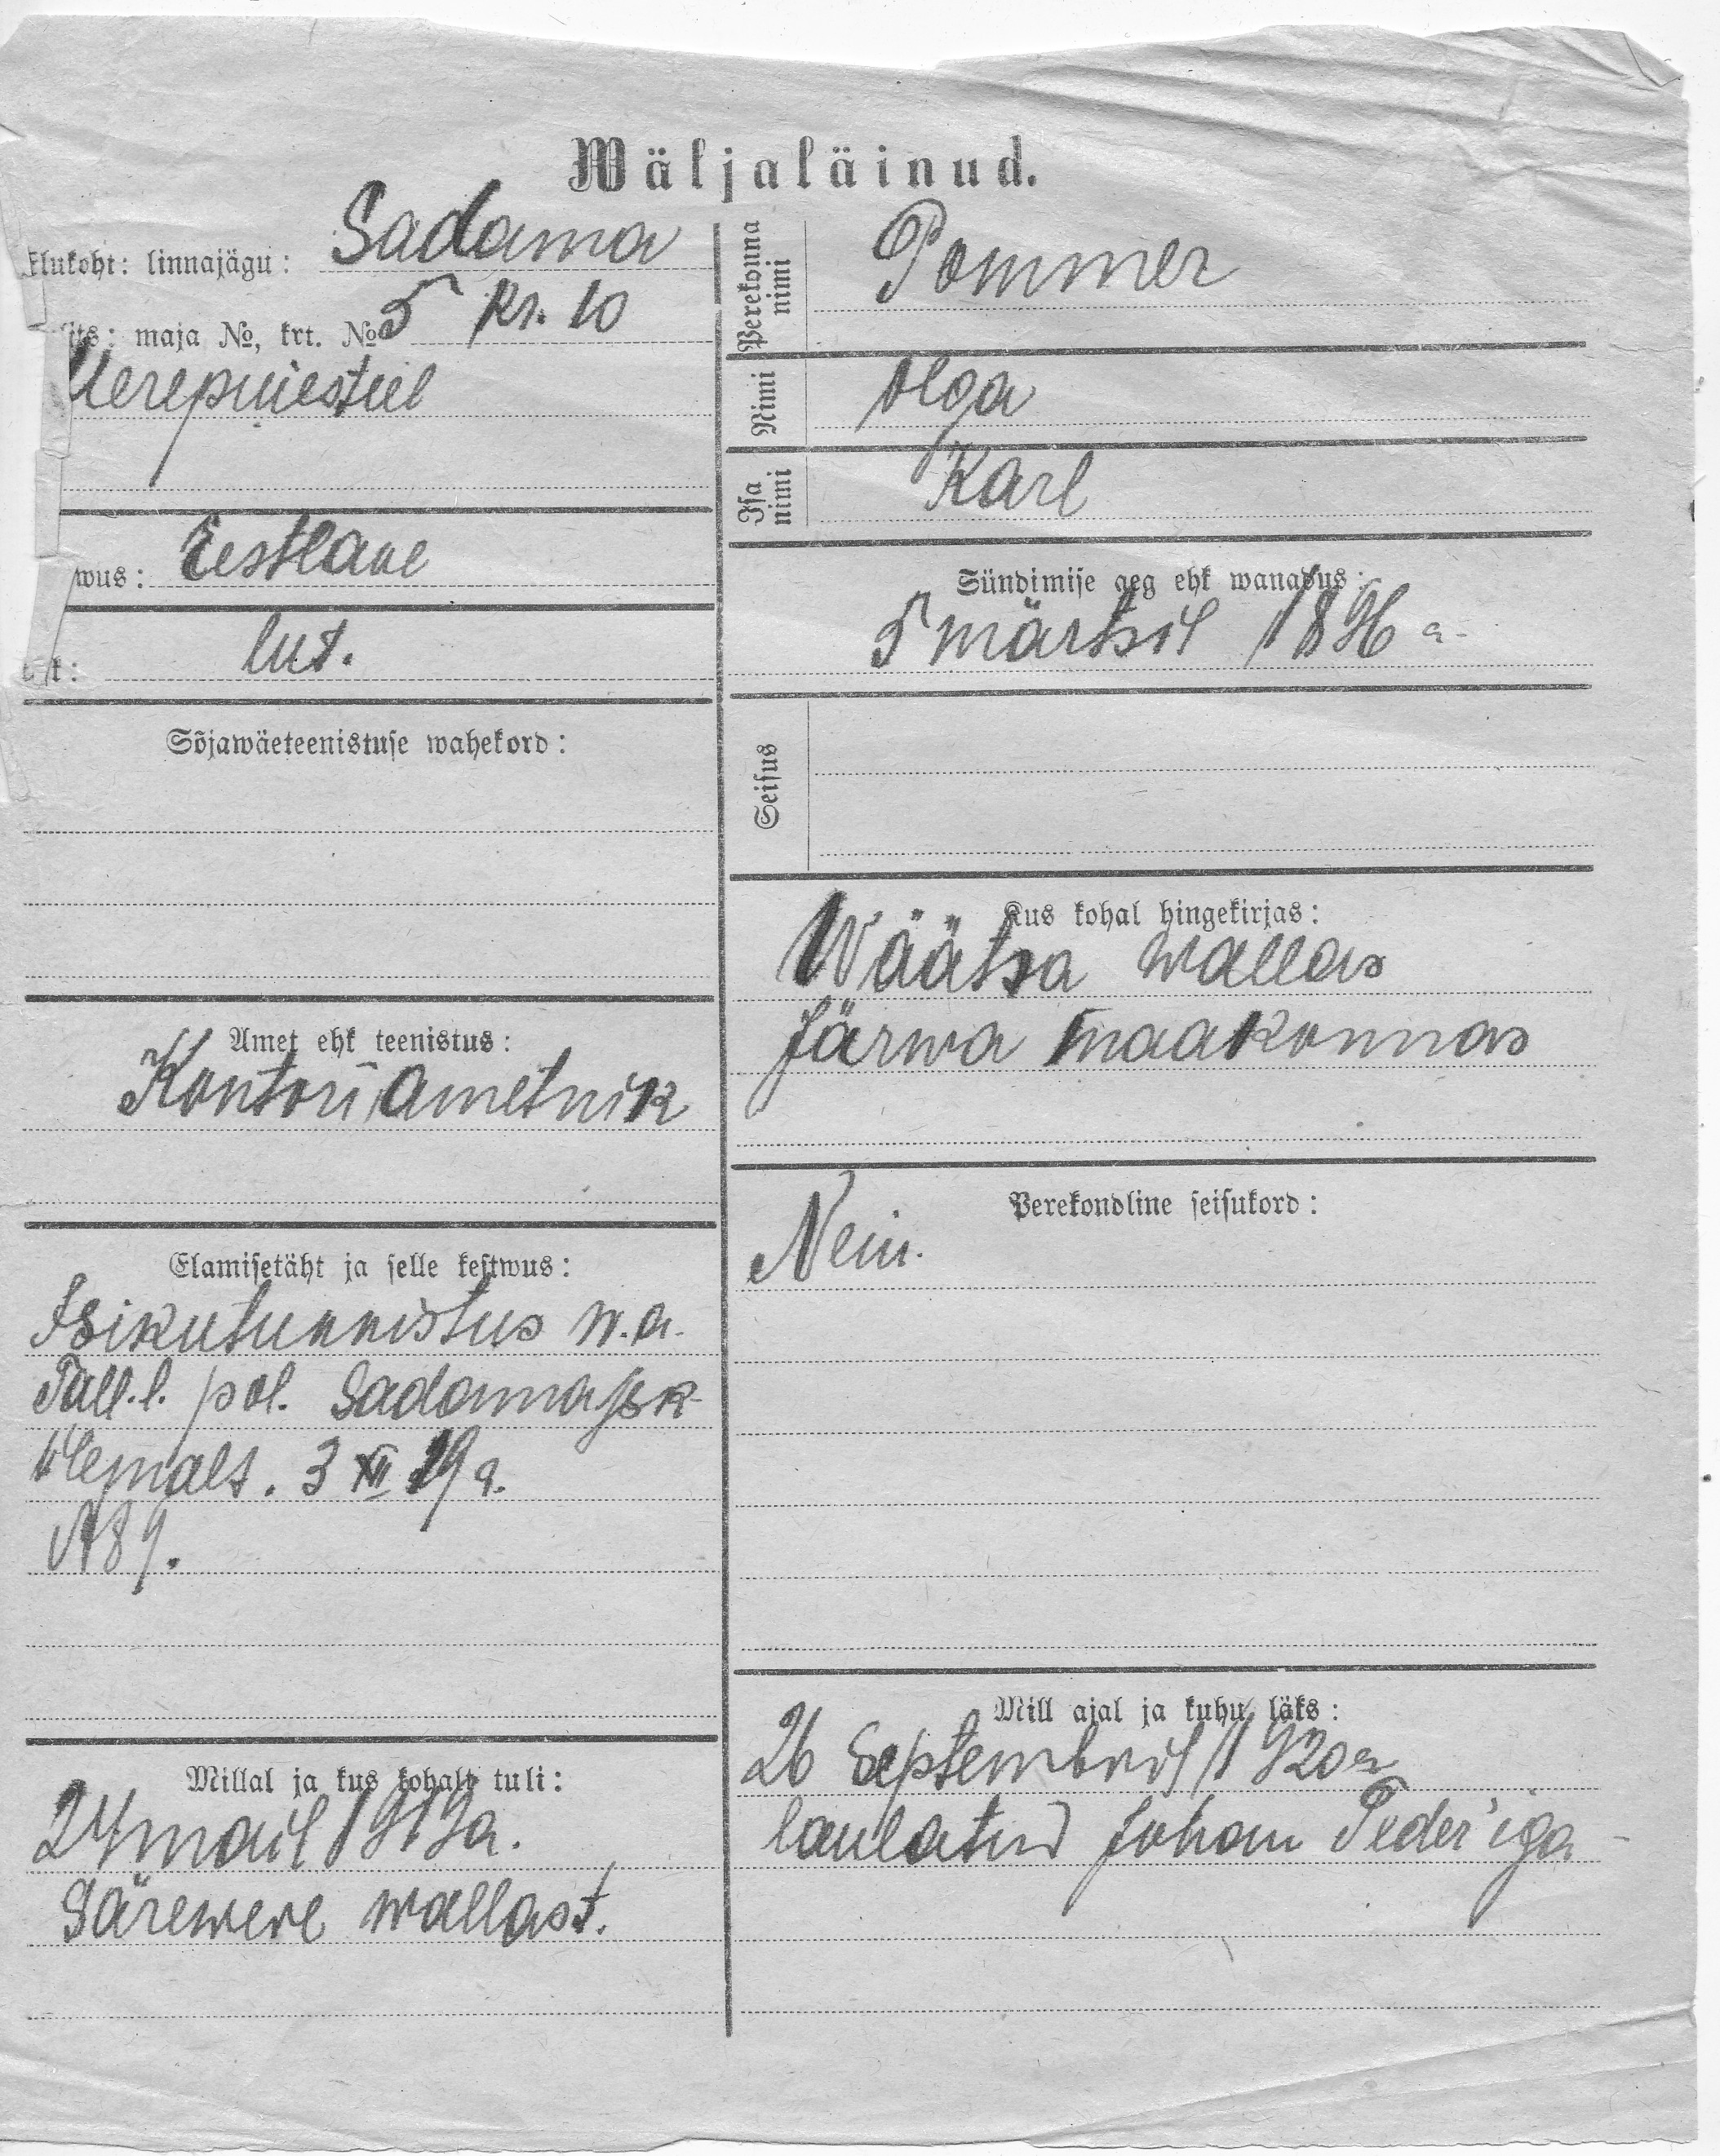 Wäljaläinud.
Elukoht: linnajägu: Sadama
maja №, krt. № 5 kr. 10
Merepuiesteel
wus: Eestlane
lut.
Sõjawäeteenistuse wahekord:
Amet ehk teenistus:
Kontori ametnik
Elamisetäht ja selle kestwus:
Isikutunnistus w.a.
Tall.l. pol. Sadamajsk
ülemalt. 3 XII 19 a.
№ 89.
Millal ja kus kohalt tuli:
24 mail 1919a.
Särewere wallast.
Perekonna nimi Pommer
Nimi Olga
Isa nimi Karl
Sündimise aeg ehk wanadus:
5 märtsil 1896 a.
Seisus
Kus kohal hingekirjas:
Wäätsa wallas
Järwa maakonnas
Perekondline seisukord:
Nein.
Mill ajal ja kuhu läks:
26 Septembril 1920a
laulatud Johan Peder'iga